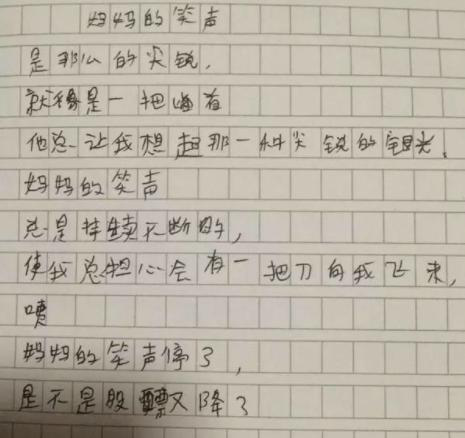 妈妈的笑声
是那么的尖锐，
就像是一把
他总让我想起那一种尖锐的光。
妈妈的笑声
总是持续不断的，
使我总担心会有一把刀向我飞来，
咦
妈妈的笑声停了，
是不是股票又降了